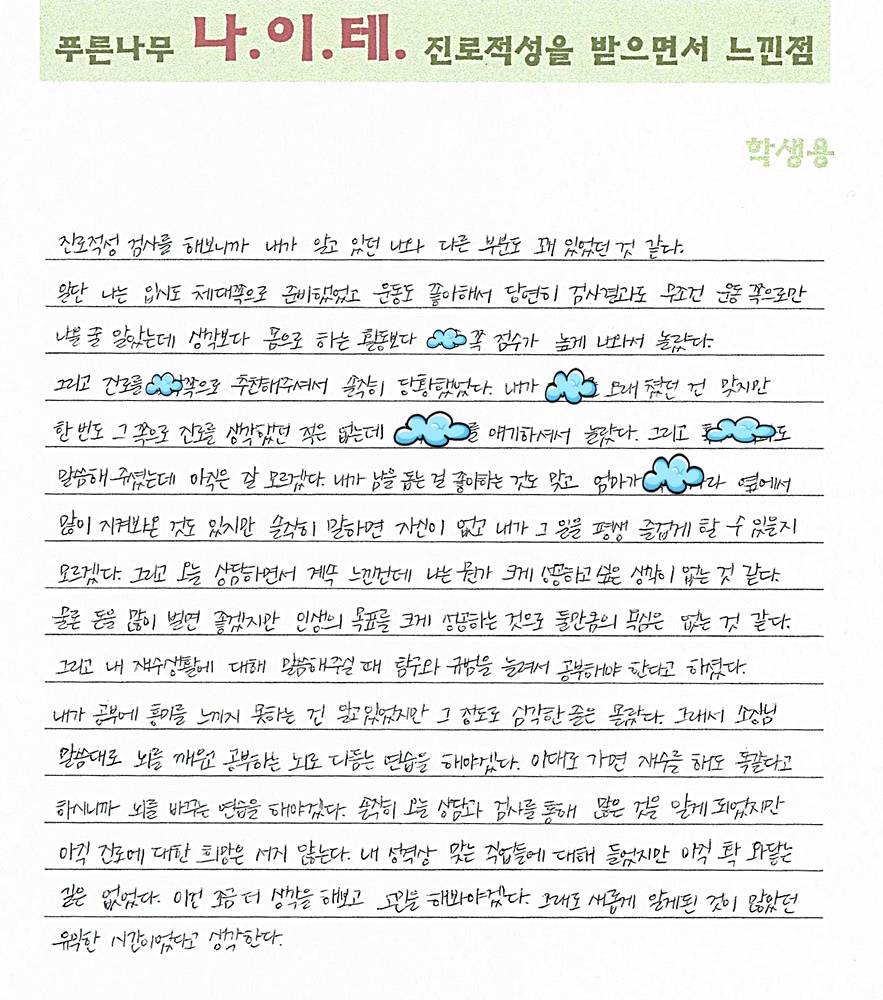 푸른나무 나.이.테. 진로적성을 받으면서 느낀점
학생용
진로적성 검사를 해보니까 내가 알고 있던 나와 다른 부분도 꽤 있었던 것 같다.
일단 나는 입시도 체대쪽으로 준비했었고 운동도 좋아해서 당연히 검사결과도 무조건 운동 쪽으로만
나올 줄 알았는데 생각보다 몸으로 하는 활동보다 쪽 점수가 높게 나와서 놀랐다.
그리고 진로를 쪽으로 추천해주셔서 솔직히 당황했었다. 내가 오래 쳤던 건 맞지만
한 번도 그 쪽으로 진로를 생각했던 적은 없는데 를 얘기하셔서 놀랐다. 그리고 도
말씀해 주셨는데 아직은 잘 모르겠다. 내가 남을 돕는 걸 좋아하는 것도 맞고 엄마가 라 옆에서
많이 지켜봐온 것도 있지만 솔직히 말하면 자신이 없고 내가 그 일을 평생 즐겁게 할 수 있을지
모르겠다. 그리고 오늘 상담하면서 계속 느낀건데 나는 뭔가 크게 성공하고 싶은 생각이 없는 것 같다.
물론 돈을 많이 벌면 좋겠지만 인생의 목표를 크게 성공하는 것으로 둘만큼의 욕심은 없는 것 같다.
그리고 내 재수생활에 대해 말씀해주실 때 탐구와 규범을 늘려서 공부해야 한다고 하셨다.
내가 공부에 흥미를 느끼지 못하는 건 알고있었지만 그 정도로 심각한 줄은 몰랐다. 그래서 소장님
말씀대로 뇌를 깨워 공부하는 뇌로 다듬는 연습을 해야겠다. 이대로 가면 재수를 해도 똑같다고
하시니까 뇌를 바꾸는 연습을 해야겠다. 솔직히 오늘 상담과 검사를 통해 많은 것을 알게 되었지만
아직 진로에 대한 희망은 서지 않는다. 내 성격상 맞는 직업들에 대해 들었지만 아직 확 와닿는
길은 없었다. 이건 조금 더 생각을 해보고 고민을 해봐야겠다. 그래도 새롭게 알게된 것이 많았던
유익한 시간이었다고 생각한다.